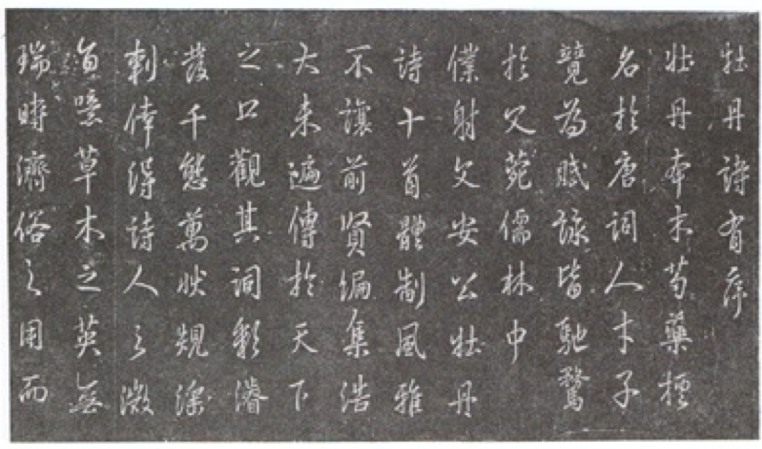 牡丹詩有序
牡丹本木芍藥種
名於唐詞人才子
競為賦詠皆馳騖
於文苑儒林中
僕射文安公牡丹
詩十首體制風雅
不讓前賢編集浩
大未遍傳於天下
之口觀其詞彩濬
發千態萬狀規深
刺倖得詩人之微
旨噫草木之英無
瑞時濟俗之用而